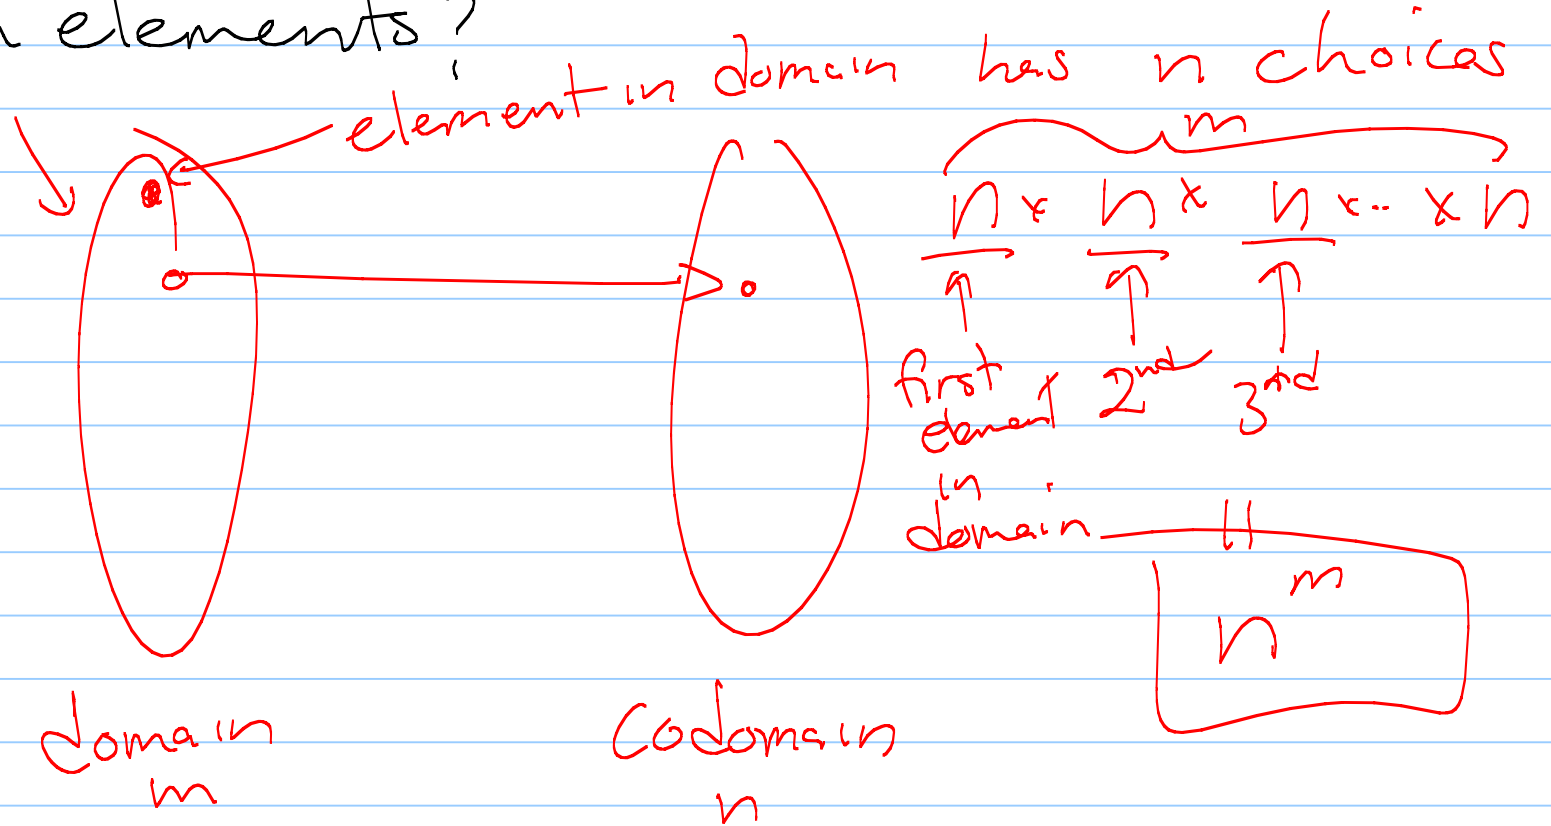 n elements?
element in domain has n choices
m
n × n × n × .. × n
first 2nd 3rd
element
in
domain
||
n^m
domain codomain
m n